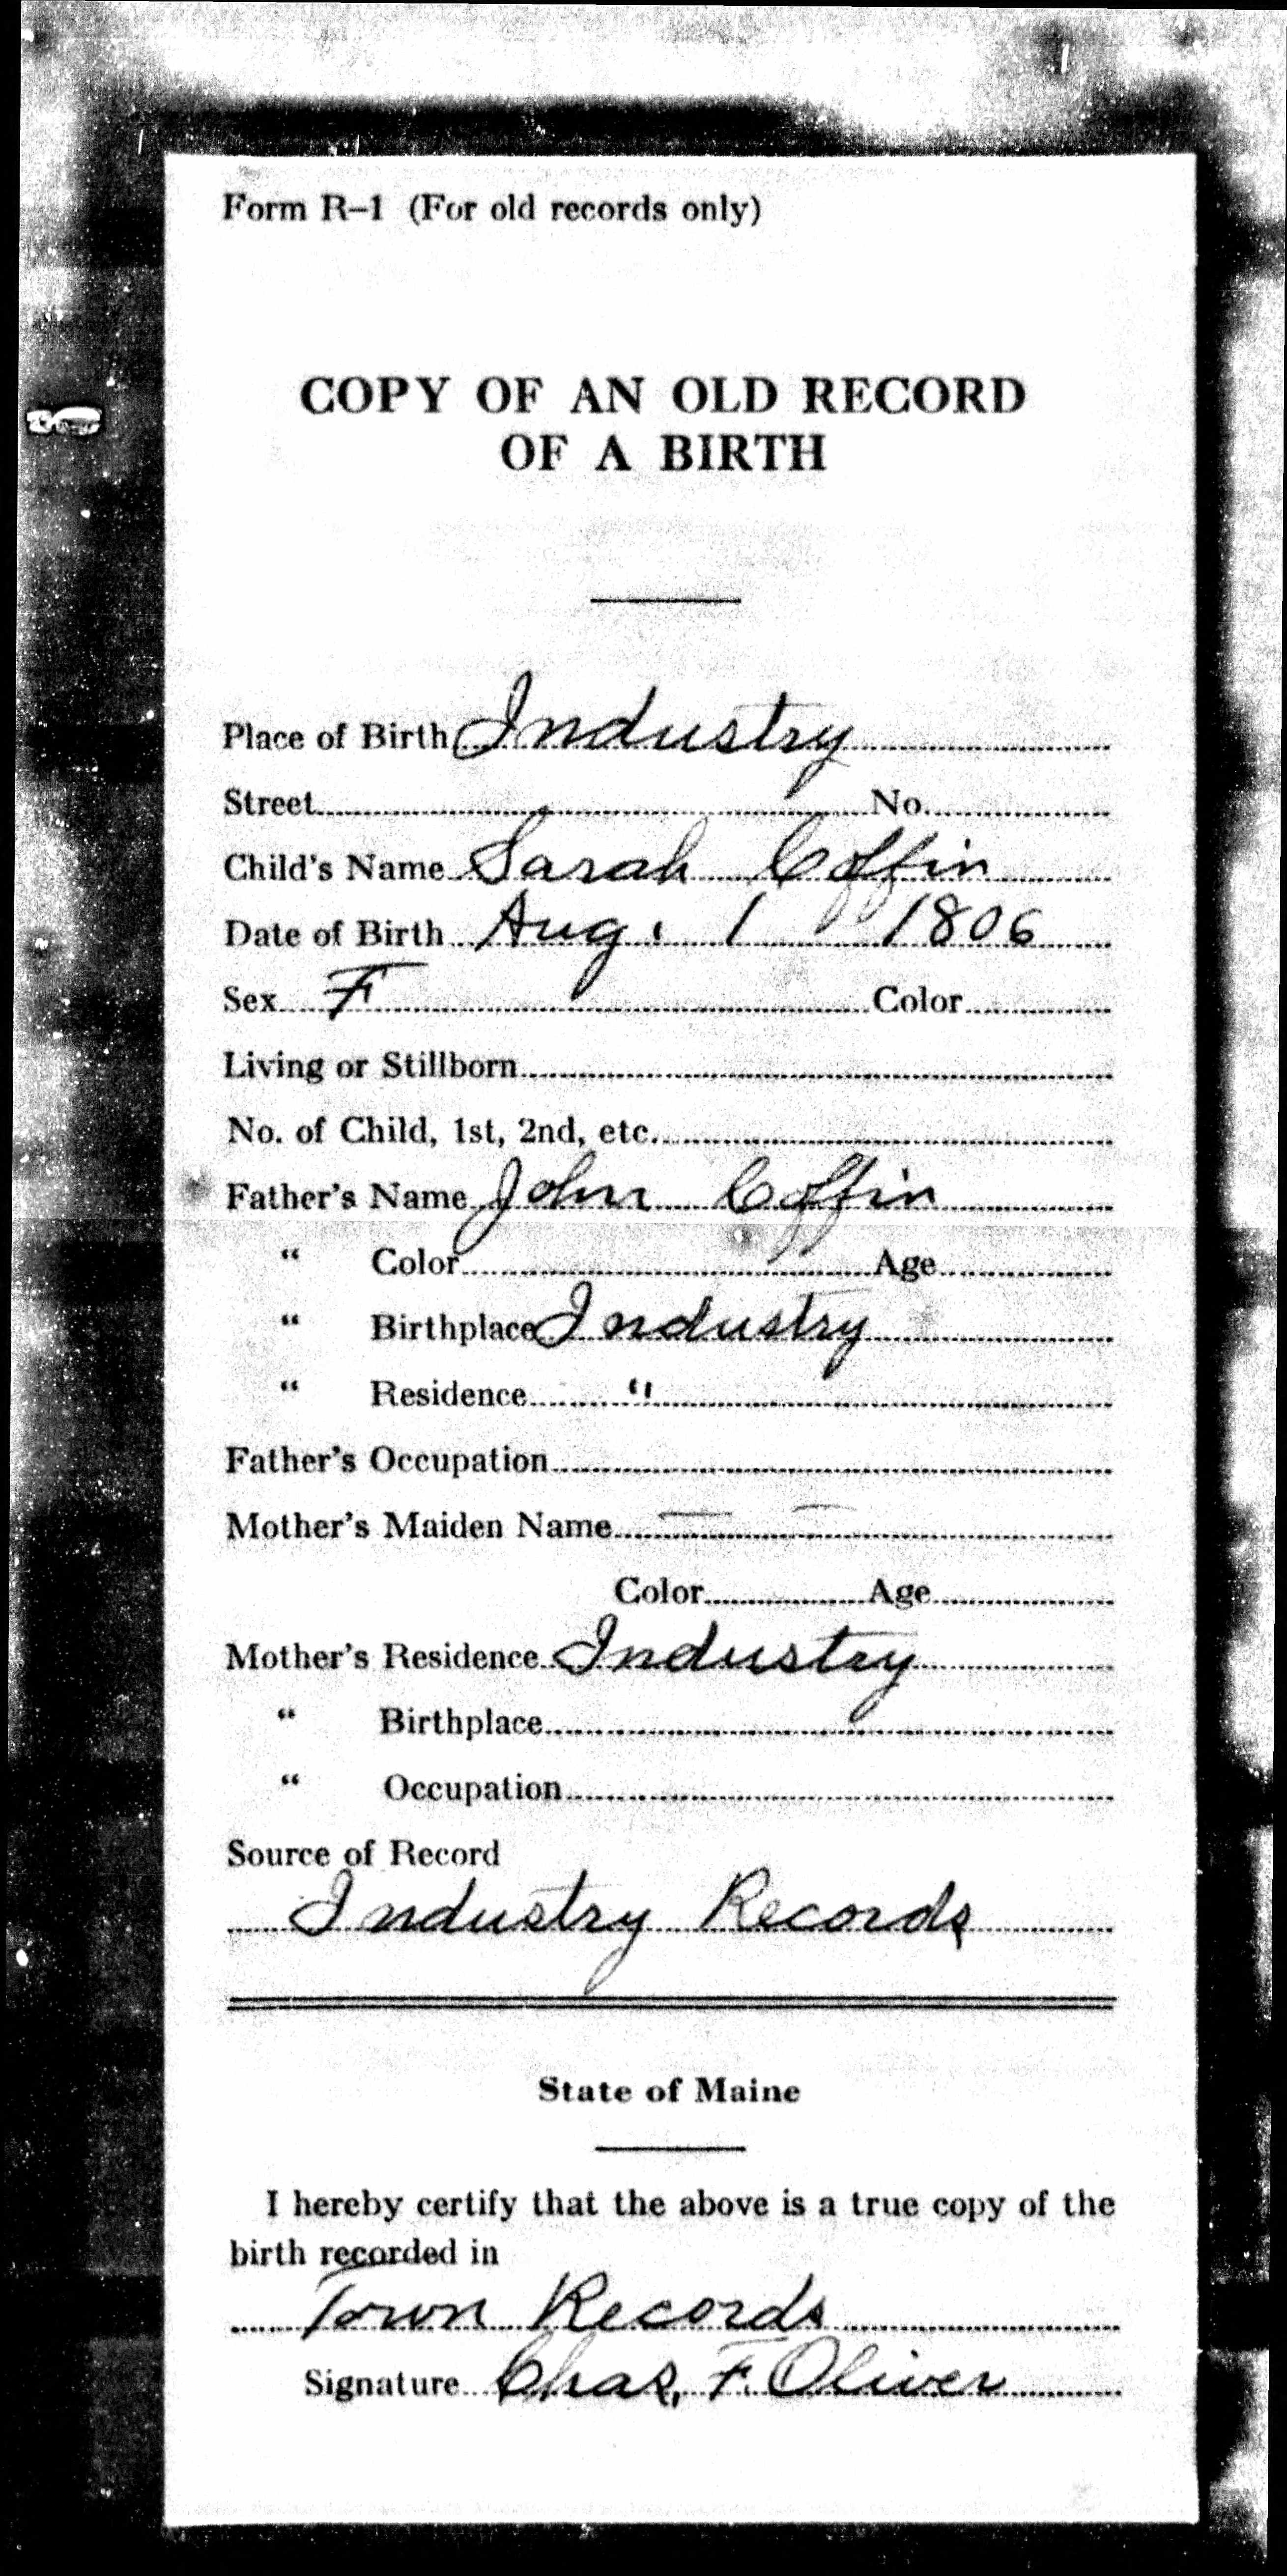 Form R-1 (For old records only)
COPY OF AN OLD RECORD
OF A BIRTH
Place of Birth Industry
Street No.
Child's Name Sarah Coffin
Date of Birth Aug. 1 1806
Sex F Color
Living or Stillborn
No. of Child, 1st, 2nd, etc.
Father's Name John Coffin
" Color Age
" Birthplace Industry
" Residence "
Father's Occupation
Mother's Maiden Name — —
Color Age
Mother's Residence Industry
" Birthplace
" Occupation
Source of Record
Industry Records
State of Maine
I hereby certify that the above is a true copy of the
birth recorded in
Town Records
Signature Chas. F. Oliver